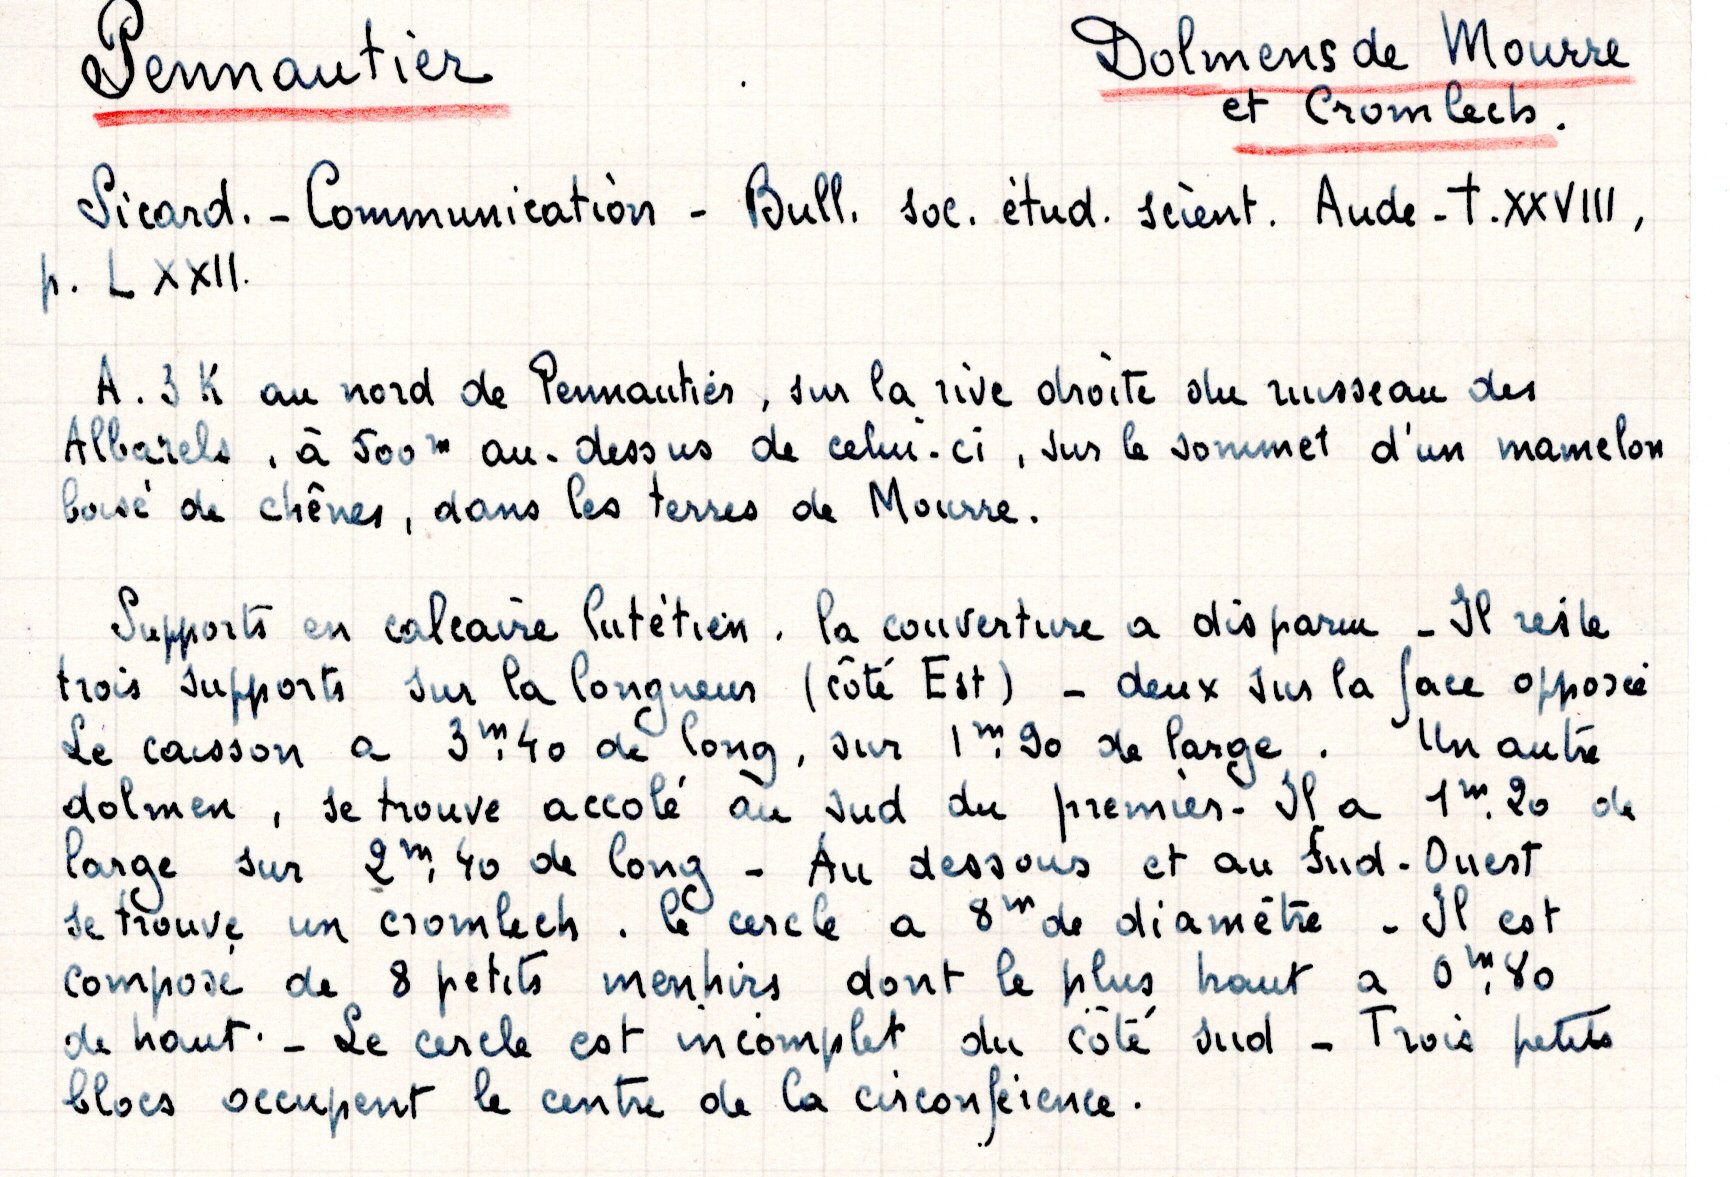 Pennautier
Dolmens de Mourre
et Cromlech.
Sicard. - Communication - Bull. soc. étud. scient. Aude - T. XXVIII,
p. LXXII.
A. 3 K au nord de Pennautier, sur la rive droite du ruisseau des
Albarels, à 500m au-dessus de celui-ci, sur le sommet d'un mamelon
boisé de chênes, dans les terres de Mourre.
Supports en calcaire lutétien. la couverture a disparu - Il reste
trois supports sur la longueur (côté Est) - deux sur la face opposée
Le caisson a 3m,40 de long, sur 1m,90 de large. Un autre
dolmen, se trouve accolé au sud du premier - Il a 1m,20 de
large sur 2m,40 de long - Au dessous et au Sud-Ouest
se trouve un cromlech. le cercle a 8m de diamètre - Il est
composé de 8 petits menhirs dont le plus haut a 0m,80
de haut. - Le cercle est incomplet du côté sud - Trois petits
blocs occupent le centre de la circonférence.